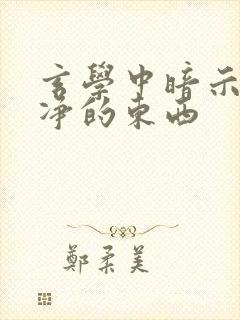 玄學中暗示
淨的東西
鄭柔美